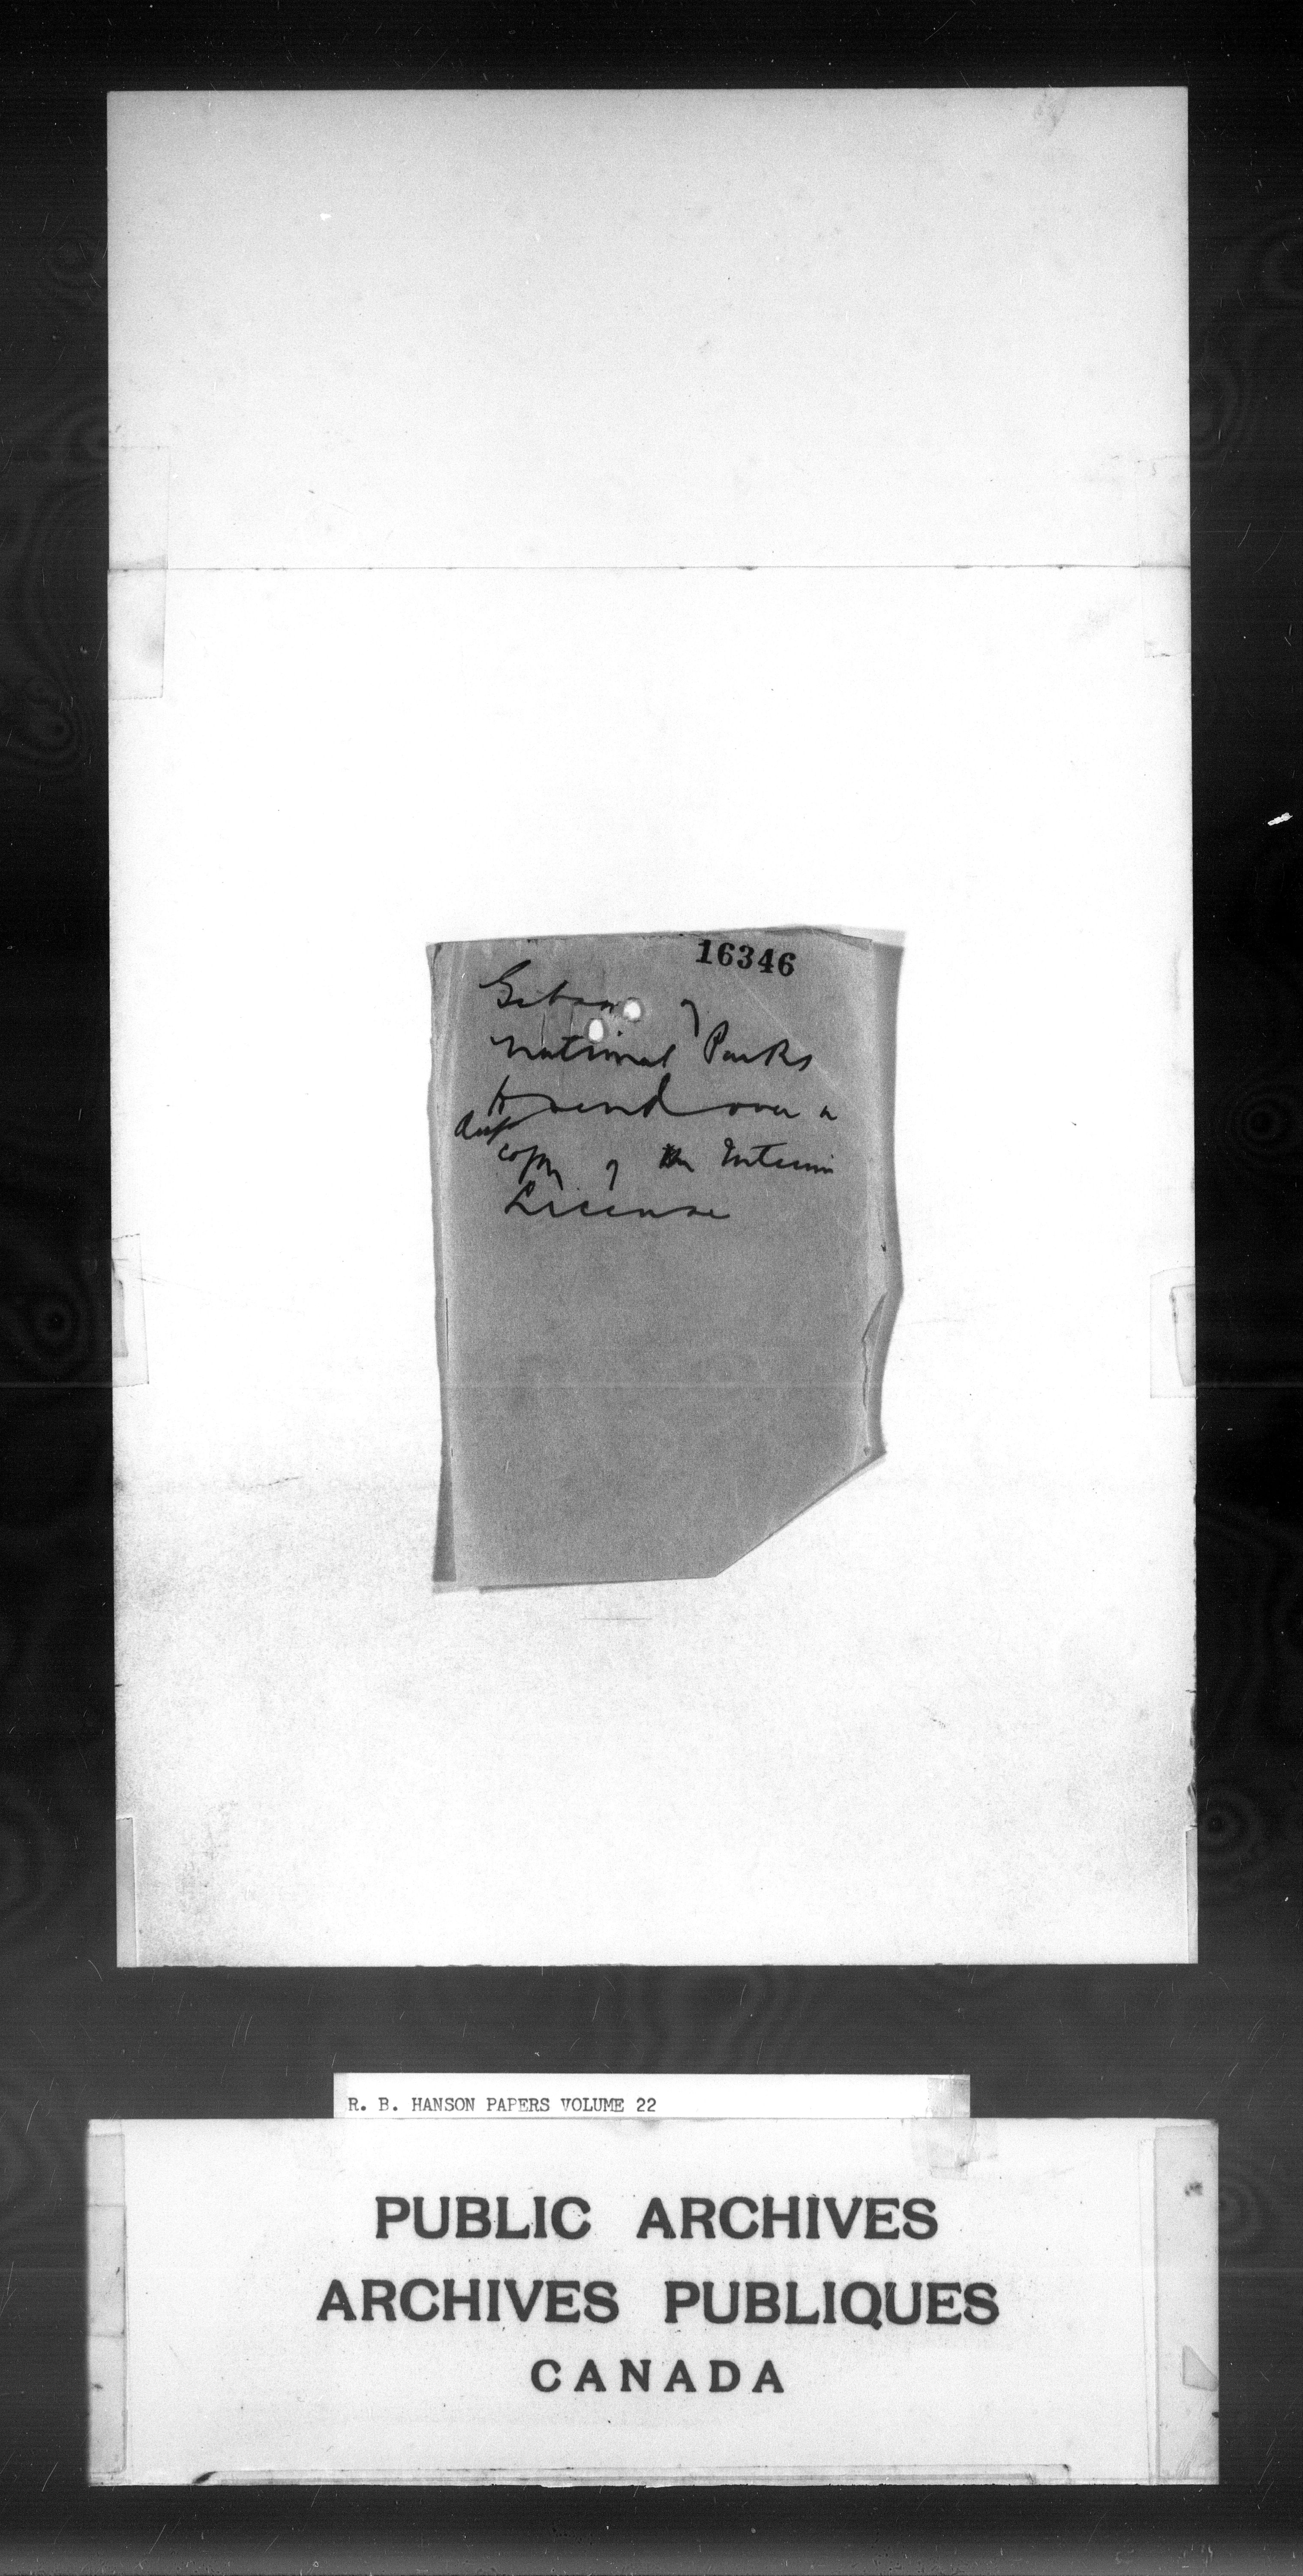 16346
Gibson of
National Parks
to send over a
dup
copy of the Interim
License
R. B. HANSON PAPERS VOLUME 22
PUBLIC ARCHIVES
ARCHIVES PUBLIQUES
CANADA